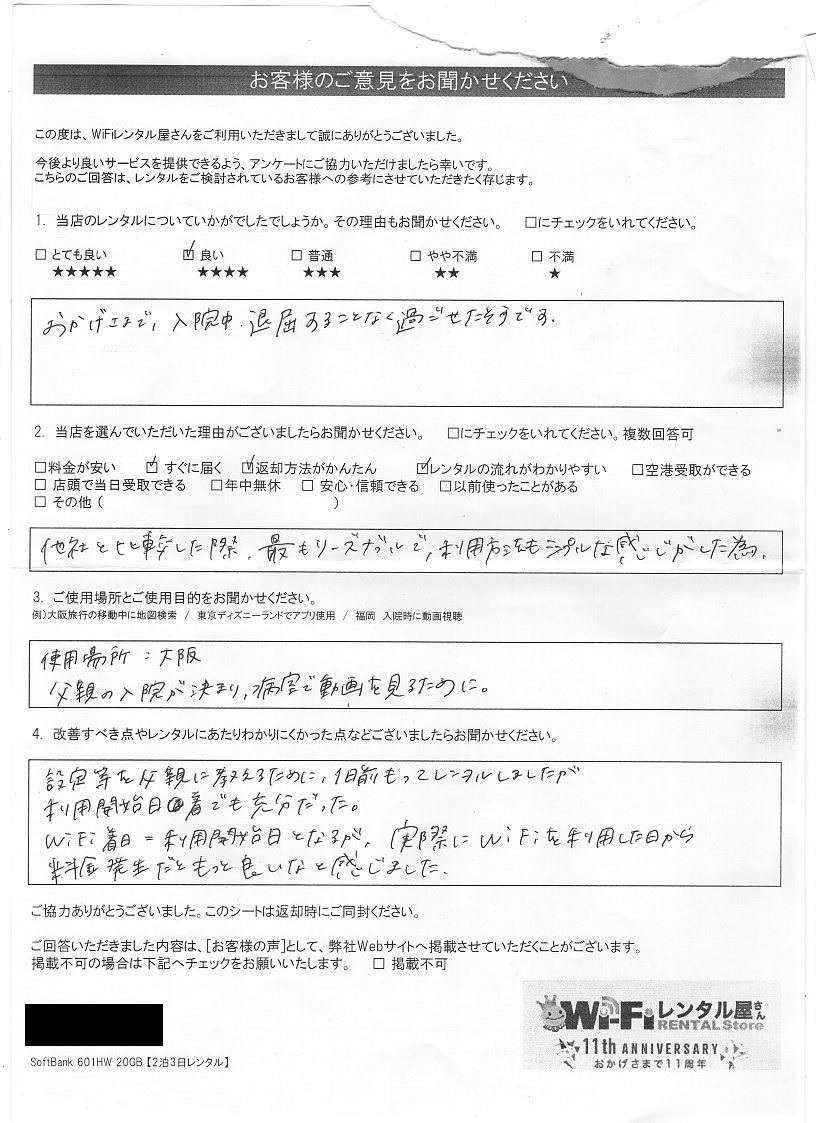 お客様のご意見をお聞かせください
この度は、WiFiレンタル屋さんをご利用いただきまして誠にありがとうございました。
今後より良いサービスを提供できるよう、アンケートにご協力いただけましたら幸いです。
こちらのご回答は、レンタルをご検討されているお客様への参考にさせていただきたく存じます。
1. 当店のレンタルについていかがでしたでしょうか。その理由もお聞かせください。 □にチェックをいれてください。
□ とても良い ☑ 良い □ 普通 □ やや不満 □ 不満
★★★★★ ★★★★ ★★★ ★★ ★
おかげさまで、入院中、退屈することなく過ごせたそうです。
2. 当店を選んでいただいた理由がございましたらお聞かせください。 □にチェックをいれてください。複数回答可
□料金が安い ☑ すぐに届く ☑返却方法がかんたん ☑レンタルの流れがわかりやすい □空港受取ができる
□ 店頭で当日受取できる □年中無休 □ 安心・信頼できる □以前使ったことがある
□ その他 ( )
他社と比較した際、最もリーズナブルで、利用方法もシンプルな感じがした為。
3. ご使用場所とご使用目的をお聞かせください。
例)大阪旅行の移動中に地図検索 / 東京ディズニーランドでアプリ使用 / 福岡 入院時に動画視聴
使用場所：大阪
父親の入院が決まり、病室で動画を見るために。
4. 改善すべき点やレンタルにあたりわかりにくかった点などございましたらお聞かせください。
設定等を父親に教えるために、1日前もってレンタルしましたが
利用開始日着でも充分だった。
WiFi着日＝利用開始日となるが、実際にWiFiを利用した日から
料金発生だともっと良いなと感じました。
ご協力ありがとうございました。このシートは返却時にご同封ください。
ご回答いただきました内容は、[お客様の声]として、弊社Webサイトへ掲載させていただくことがございます。
掲載不可の場合は下記へチェックをお願いいたします。 □ 掲載不可
Wi-Fiレンタル屋さん
RENTAL Store
11th ANNIVERSARY
おかげさまで11周年
SoftBank 601HW 20GB【2泊3日レンタル】